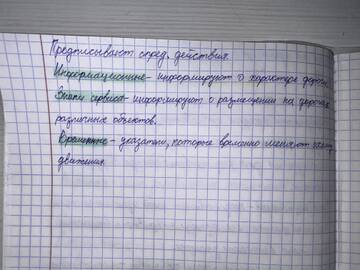 Предписывают опред. действия.
Информационные - информируют о характере дороги.
Знаки сервиса - информируют о размещении на дорогах
различных объектов.
Временные - указатели, которые временно меняют
движения.